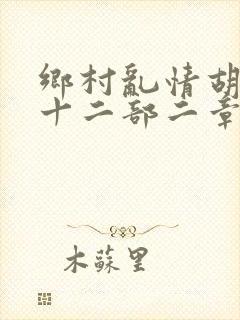 鄉村亂情胡
十二部二章
木蘇里